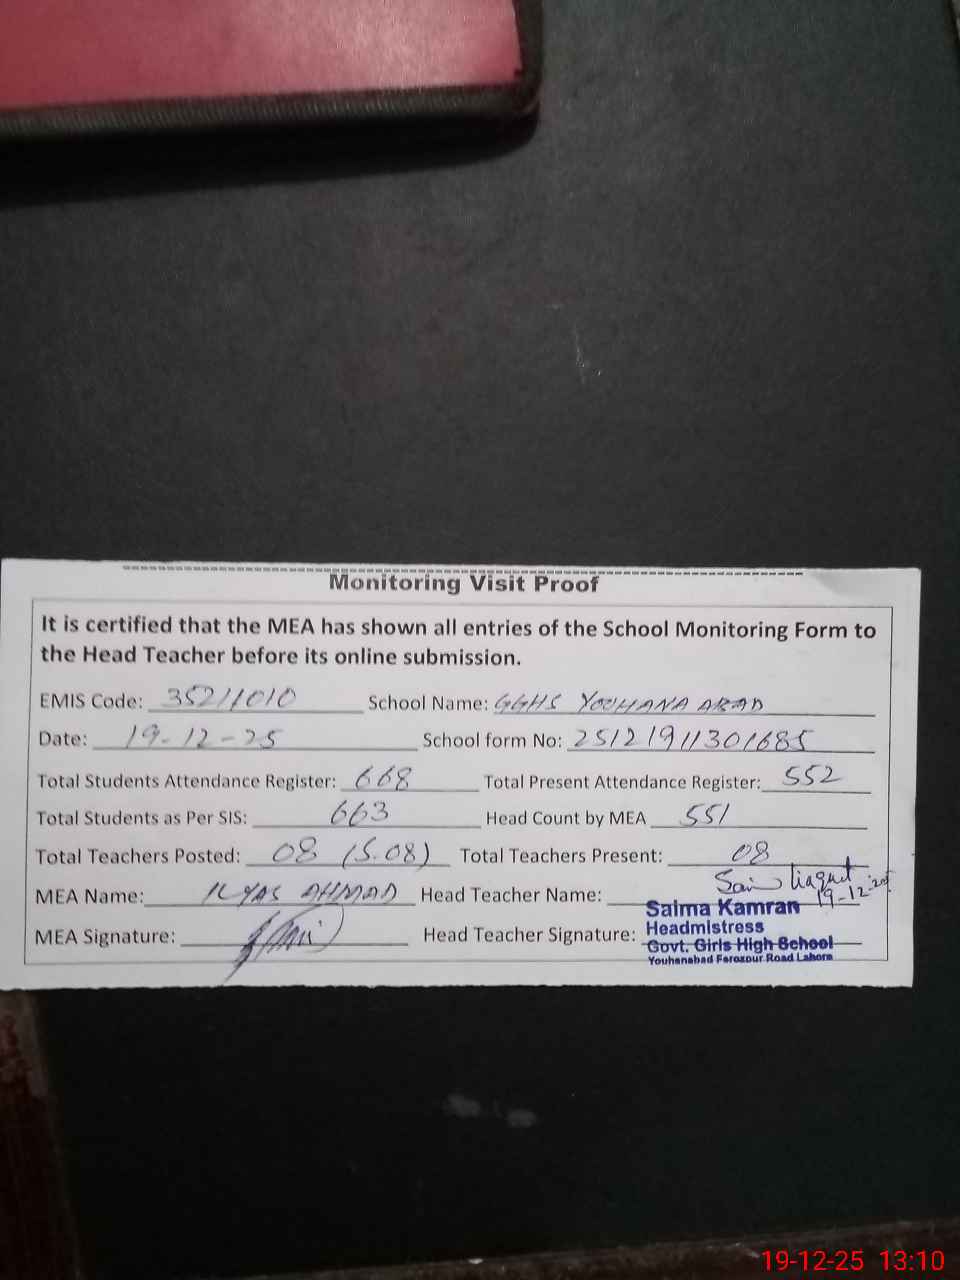 Monitoring Visit Proof
It is certified that the MEA has shown all entries of the School Monitoring Form to
the Head Teacher before its online submission.
EMIS Code: 35211010 School Name: GGHS YOUHANA ABAD
Date: 19-12-25 School form No: 25121911301685
Total Students Attendance Register: 668 Total Present Attendance Register: 552
Total Students as Per SIS: 663 Head Count by MEA 551
Total Teachers Posted: 08 (S.08) Total Teachers Present: 08
MEA Name: ILYAS AHMAD Head Teacher Name: 19-12-25
MEA Signature: Head Teacher Signature:
Saima Kamran
Headmistress
Govt. Girls High School
Youhanabad Ferozpur Road Lahore
19-12-25 13:10